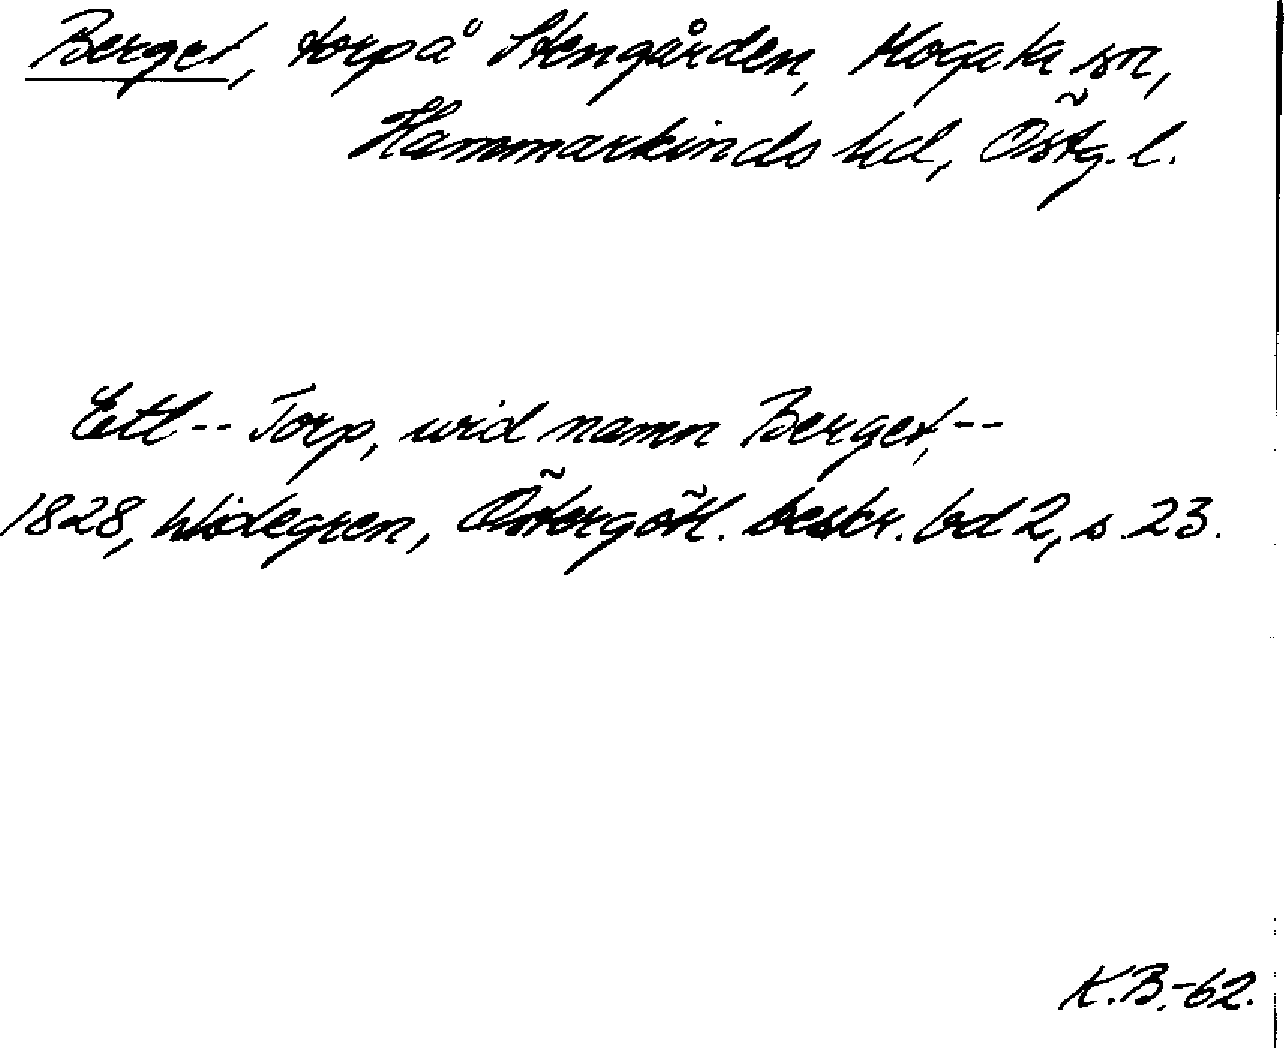 Berget, torp å Stengården, Mogata sn,
Hammarkinds hd, Östg. l.
Ett -- Torp, wid namn Berget, --
1828, Widegren, Östergötl. beskr. bd 2, s. 23.
K.B.-62.